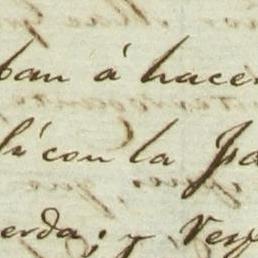 ban á hacer
lú con la Pa
erda; y Ver